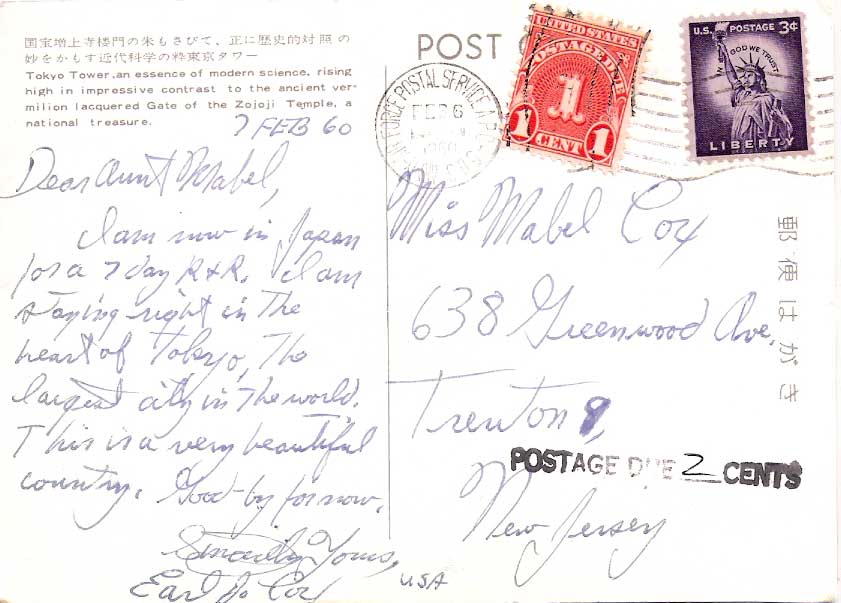 国宝増上寺楼門の朱もさびて、正に歴史的対照の
妙をかもす近代科学の粋東京タワー
Tokyo Tower,an essence of modern science, rising
high in impressive contrast to the ancient ver-
milion lacquered Gate of the Zojoji Temple, a
national treasure.
7 FEB 60
Dear Aunt Mabel,
I am now in Japan
for a 7 day R & R. I am
staying right in the
heart of Tokyo, The
largest city in the world.
This is a very beautiful
country. Good-by for now.
Sincerely Yours,
Earl J. Cox
POST
AIR FORCE POSTAL SERVICE
FEB 6
1960
UNITED STATES
POSTAGE DUE
1
1 CENT 1
U.S. POSTAGE 3¢
IN GOD WE TRUST
LIBERTY
Miss Mabel Cox
638 Greenwood Ave.
Trenton 8,
POSTAGE DUE 2 CENTS
New Jersey
USA
郵便はがき